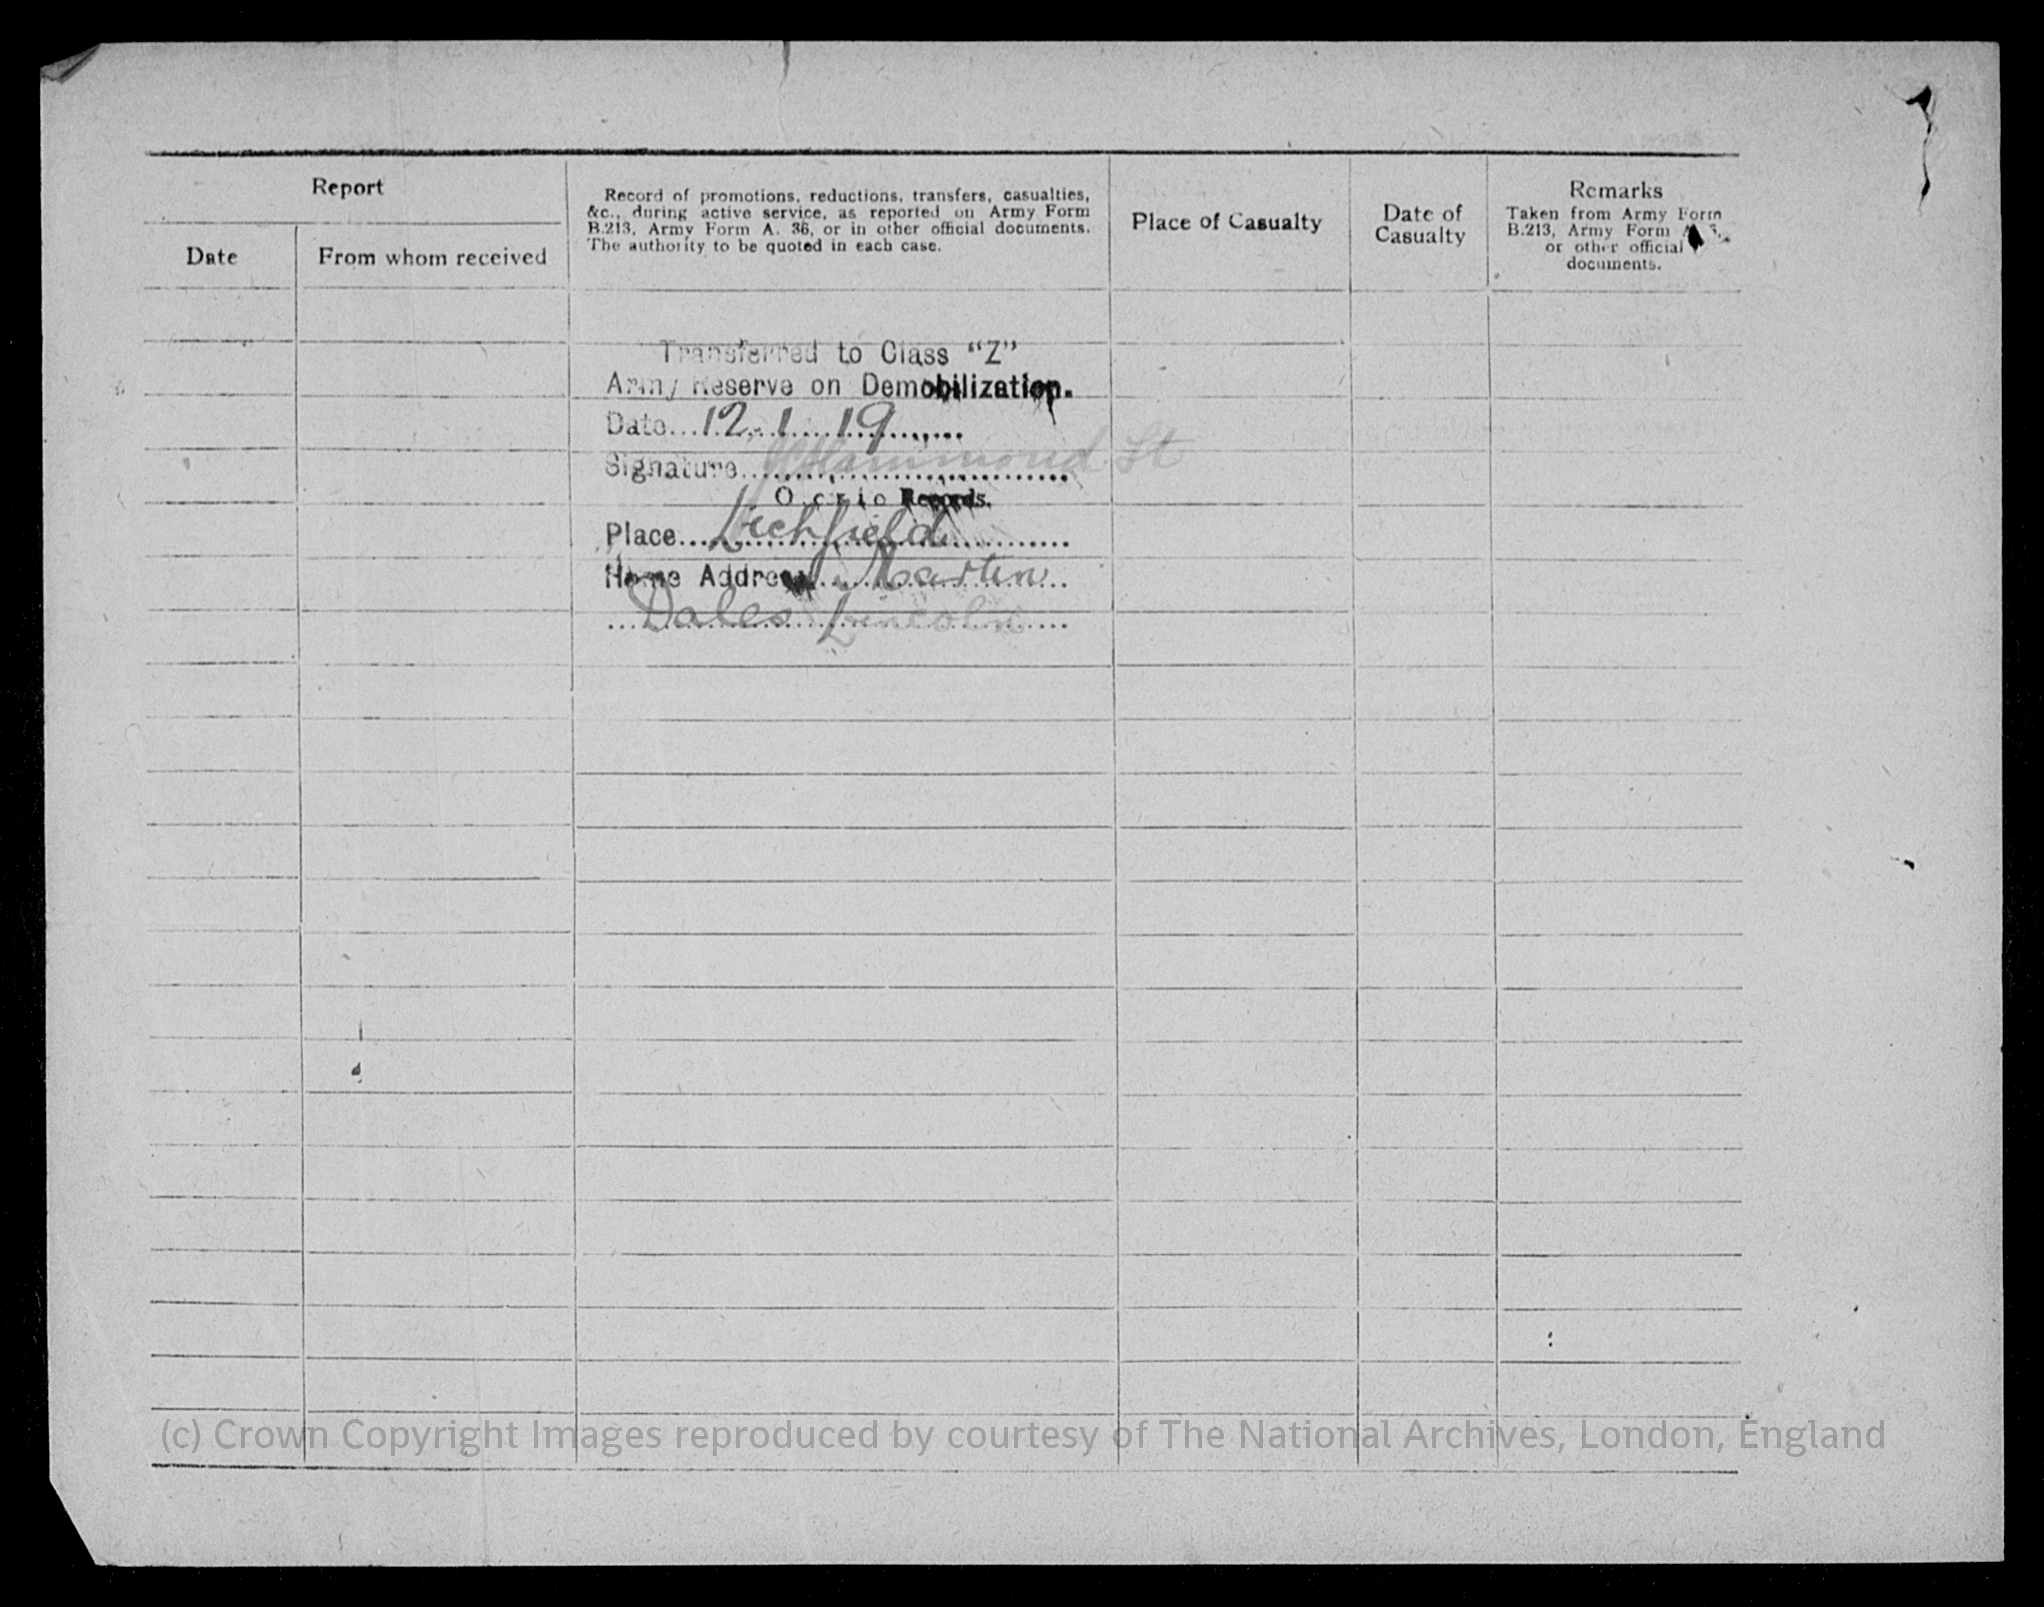 Report
Date
From whom received
Record of promotions, reductions, transfers, casualties,
&c., during active service, as reported on Army Form
B.213, Army Form A. 36, or in other official documents.
The authority to be quoted in each case.
Place of Casualty
Date of
Casualty
Remarks
Taken from Army Form
B.213, Army Form
or other official
documents.
Transferred to Class "Z"
Army Reserve on Demobilization.
Date...12.1.19
Signature... Hammond Lt
Records.
Place...Lichfield
Home Address... Martin
Dales Lincoln
(c) Crown Copyright Images reproduced by courtesy of The National Archives, London, England